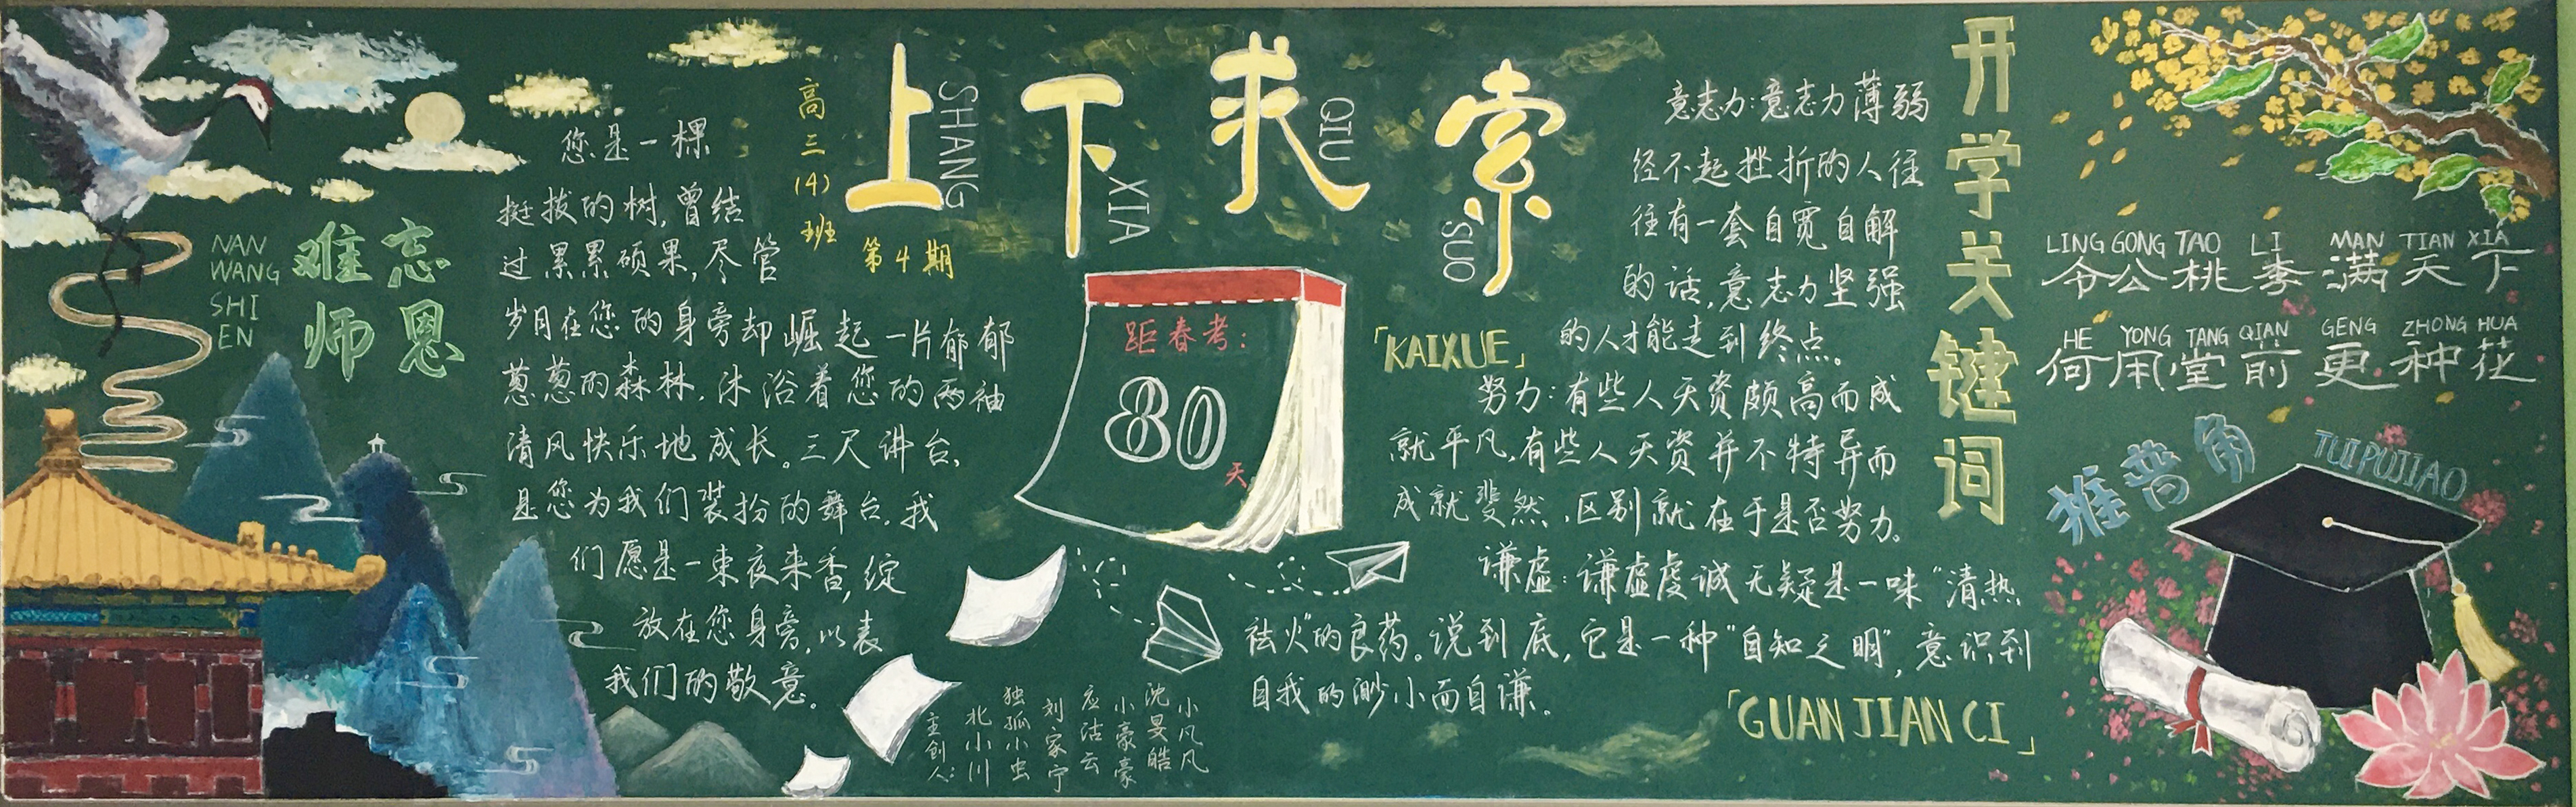 NAN
WANG
SHI
EN
难忘
师恩
您是一棵
挺拔的树,曾结
过累累硕果,尽管
岁月在您的身旁却崛起一片郁郁
葱葱的森林,沐浴着您的两袖
清风快乐地成长。三尺讲台,
是您为我们装扮的舞台,我
们愿是一束夜来香,绽
放在您身旁,以表
我们的敬意。
高三(4)班
上下求索
SHANG
XIA
QIU
SUO
第4期
距春考:
80
天
主创人:
北小川
独孤小虫
刘家宁
应洁云
小豪豪
沈旻皓
小凡凡
意志力:意志力薄弱
经不起挫折的人往
往有一套自宽自解
的话,意志力坚强
的人才能走到终点。
努力:有些人天资颇高而成
就平凡,有些人天资并不特异而
成就斐然,区别就在于是否努力。
谦虚:谦虚虔诚无疑是一味“清热
祛火”的良药。说到底,它是一种“自知之明”,意识到
自我的渺小而自谦.
「KAIXUE」
「GUAN JIAN CI」
开学关键词
LING GONG TAO LI MAN TIAN XIA
令公桃李满天下
HE YONG TANG QIAN GENG ZHONG HUA
何用堂前更种花
推普角
TUIPUJIAO